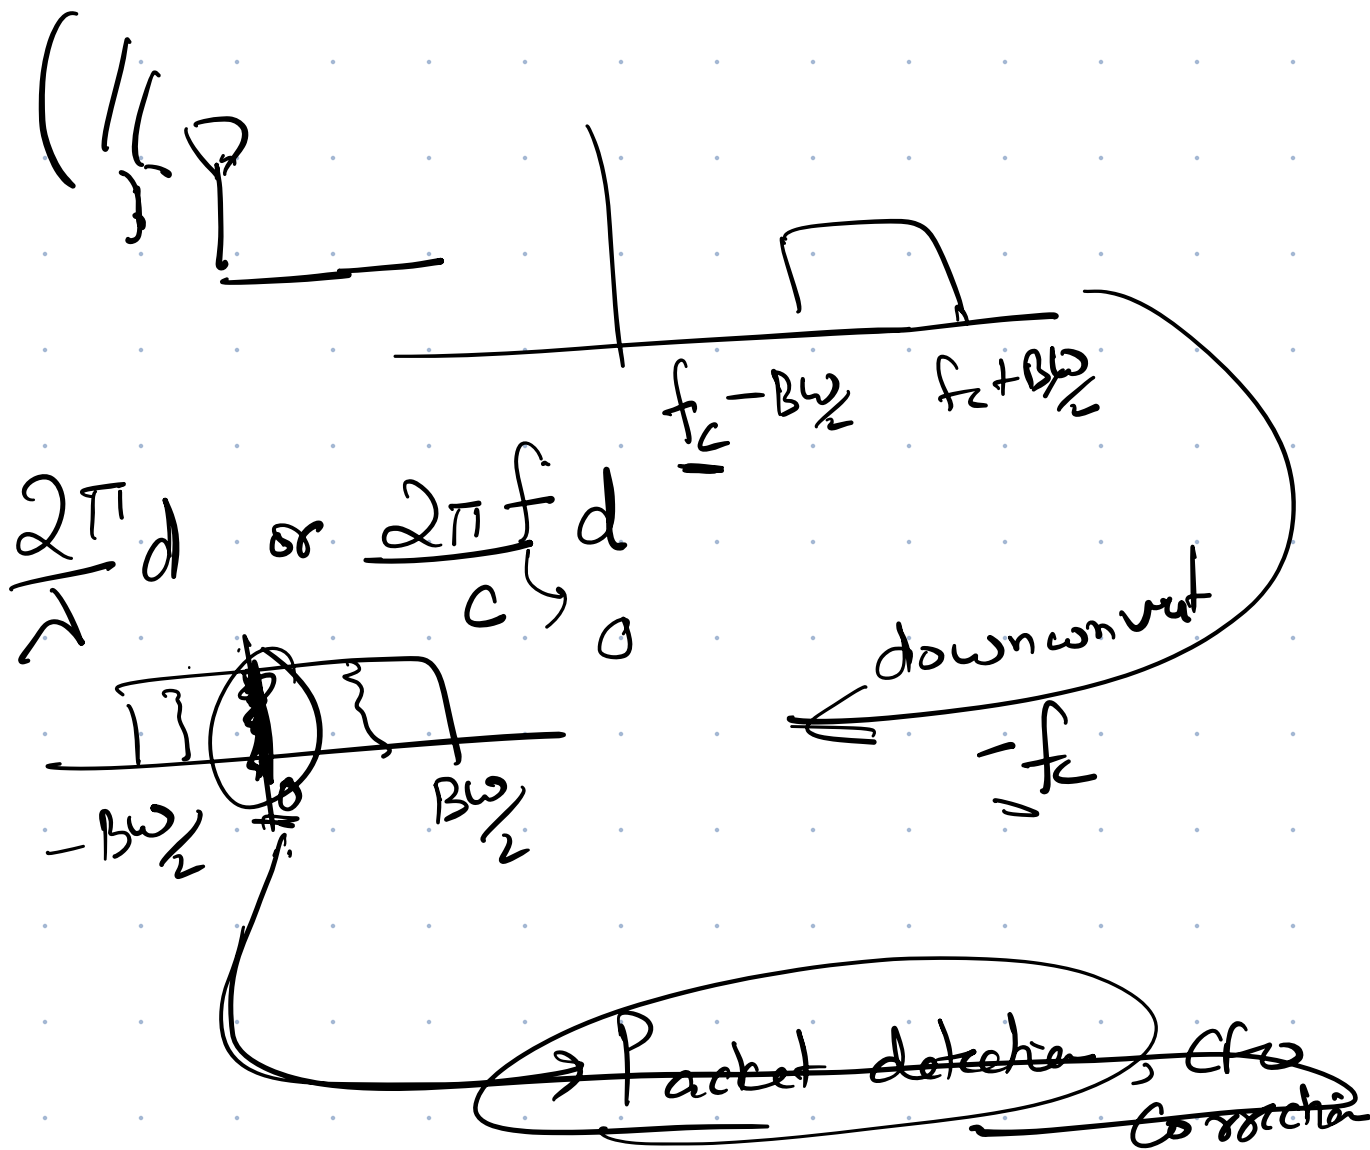 f_c - BW/2    f_c + BW/2
2π/λ d or 2πf/c d
0
downconvert
- f_c
-BW/2    0    BW/2
Packet detection, CFO
Correction